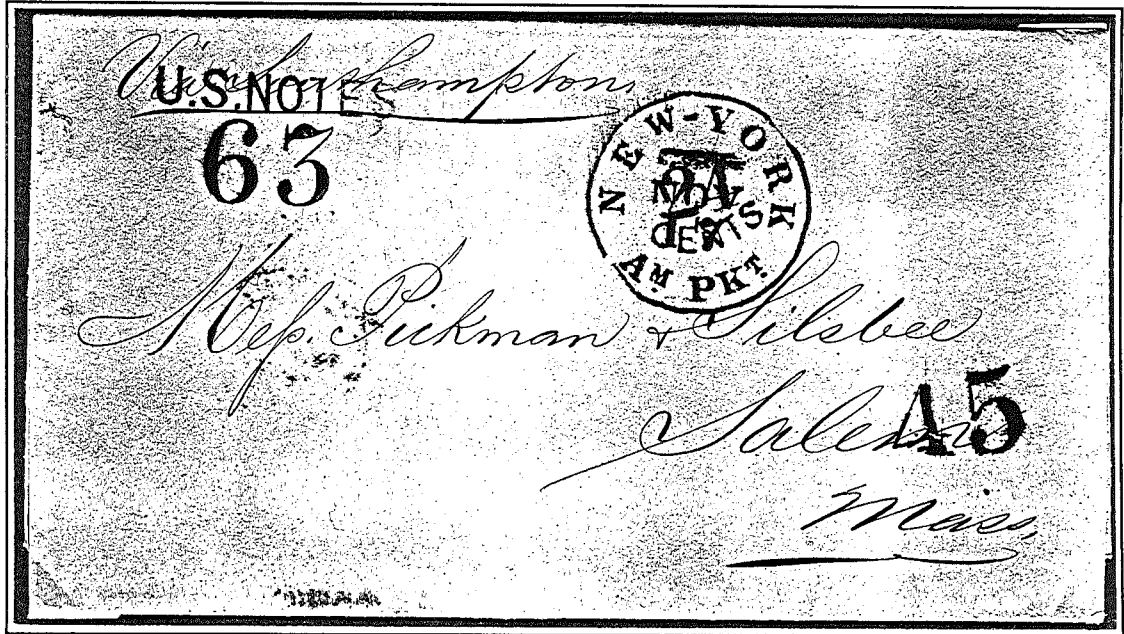 Via Southampton
U.S.NOTES
63
NEW-YORK
24
CENTS
AM PKT
Mess. Pickman & Silsbee
45
Salem
Mass.